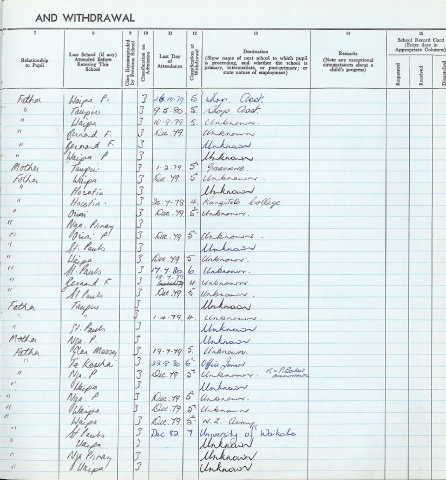 AND WITHDRAWAL
7 8 9 10 11 12 13 14 15
Relationship to Pupil
Last School (if any) Attended Before Entering This School
Class Recommended by Previous School
Classification on Admission
Last Day of Attendance
Classification at Withdrawal
Destination
(Show name of next school to which pupil is proceeding, and whether the school is primary, intermediate, or post-primary; or state nature of employment)
Remarks
(Note any exceptional circumstances about a child's progress)
School Record Card
(Enter dates in Appropriate Columns)
Requested
Received
Father Waipa P. 3 5 Shop Asst.
" Taupiri 3 9.5.80 5 Shop Asst.
" Waipa 3 10.9.79 5 Unknown.
" Bernard F. 3 Dec 79 Unknown
" Bernard F. 3 Unknown
" Waipa P 3 Unknown
Mother Taupiri 3 1.2.79 5
Father Waipa 3 Dec 79. 5 Unknown.
" Horotiu 3 Unknown
" Horotiu. 3 4. Rangitoto College
" 3 Dec. 79 5 Unknown.
" Nga. 3
" P 3 Dec. 79 5 Unknown.
" St. Pauls 3 Unknown
" Waipa 3 Dec 79 5 Unknown.
" St. Pauls 3 17.7.80 6 Unknown.
" Bernard F. 3 4. Unknown.
" St Pauls 3 Dec 79 5 Unknown.
Father Taupiri 3 Unknown
" 3 1.2.79 4 Unknown.
" St. Pauls 3 Unknown
Mother Nga. P. 3 Unknown
Father Glen Massey 3 19.9.79 5. Unknown
" Te Kowhai 3 22.8.80 6 Office Junior
" Nga. P 3 Dec 79 5 Unknown.
" Waipa 3 Unknown
" Nga P 3 Dec. 79 5 Unknown.
" Waipa 3 Dec. 79 5 Unknown
" Waipa 3 Dec. 79 5 N.Z. Army
" St Pauls 3 Dec 82 7 University of Waikato
" Waipa 3 Unknown
" Nga 3 Unknown
" Waipa 3 Unknown